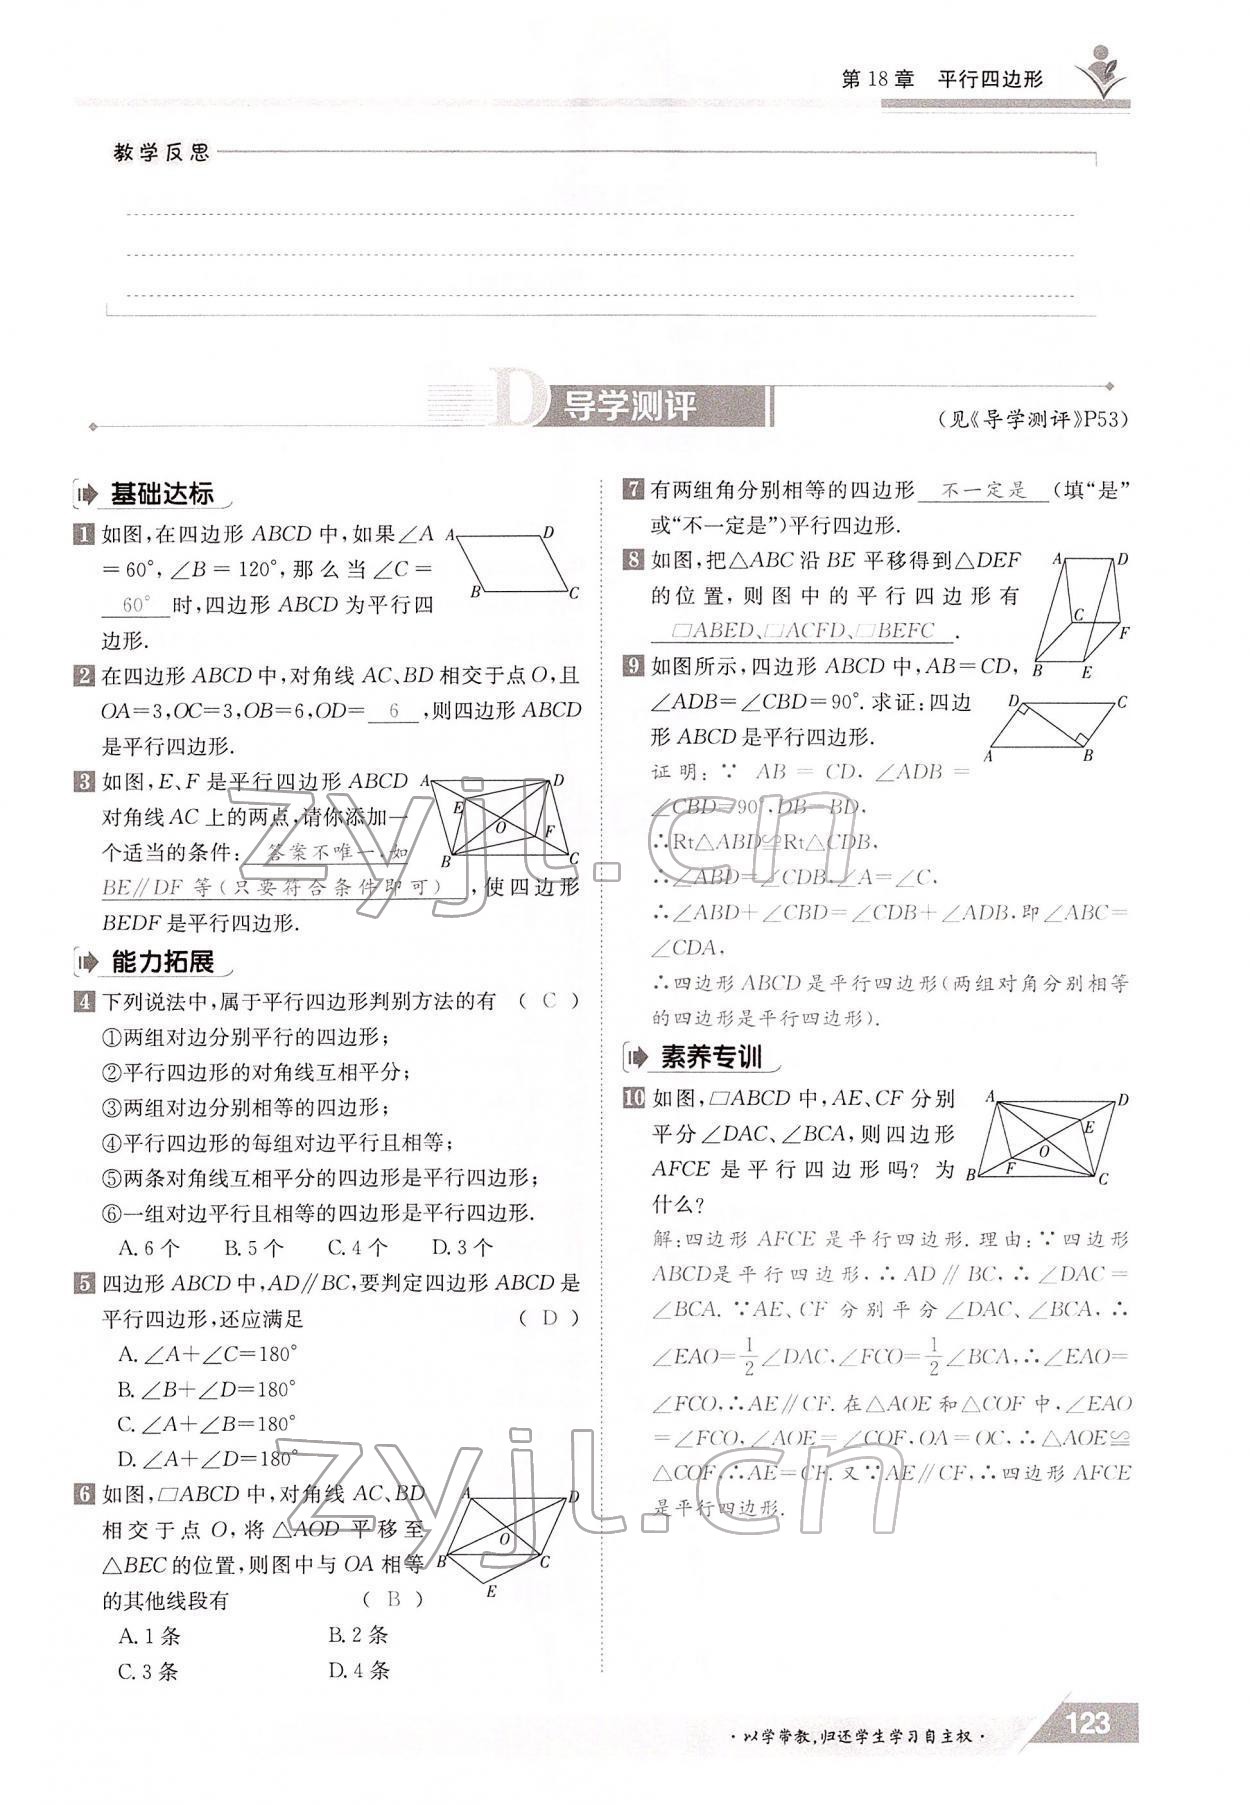 第 18 章　平行四边形
教学反思
D 导学测评
(见《导学测评》P53)
基础达标
1 如图,在四边形 ABCD 中,如果∠A
=60°,∠B=120°,那么当∠C=
60° 时,四边形 ABCD 为平行四
边形.
A D
B C
2 在四边形 ABCD 中,对角线 AC、BD 相交于点 O,且
OA=3,OC=3,OB=6,OD= 6 ,则四边形 ABCD
是平行四边形.
3 如图,E、F 是平行四边形 ABCD
对角线 AC 上的两点,请你添加一
个适当的条件: 答案不唯一,如
BE∥DF 等(只要符合条件即可) ,使四边形
BEDF 是平行四边形.
A D
E
O F
B C
能力拓展
4 下列说法中,属于平行四边形判别方法的有 ( C )
①两组对边分别平行的四边形;
②平行四边形的对角线互相平分;
③两组对边分别相等的四边形;
④平行四边形的每组对边平行且相等;
⑤两条对角线互相平分的四边形是平行四边形;
⑥一组对边平行且相等的四边形是平行四边形.
A. 6 个　B. 5 个　C. 4 个　D. 3 个
5 四边形 ABCD 中,AD∥BC,要判定四边形 ABCD 是
平行四边形,还应满足 ( D )
A. ∠A+∠C=180°
B. ∠B+∠D=180°
C. ∠A+∠B=180°
D. ∠A+∠D=180°
6 如图,□ABCD 中,对角线 AC、BD
相交于点 O,将△AOD 平移至
△BEC 的位置,则图中与 OA 相等
的其他线段有 ( B )
A D
O
B C
E
A. 1 条　B. 2 条
C. 3 条　D. 4 条
7 有两组角分别相等的四边形 不一定是 (填“是”
或“不一定是”)平行四边形.
8 如图,把△ABC 沿 BE 平移得到△DEF
的位置,则图中的平行四边形有
□ABED、□ACFD、□BEFC .
A D
C
F
B E
9 如图所示,四边形 ABCD 中,AB=CD,
∠ADB=∠CBD=90°.求证:四边
形 ABCD 是平行四边形.
D C
A B
证明:∵ AB = CD, ∠ADB =
∠CBD=90°,DB=BD,
∴Rt△ABD≌Rt△CDB,
∴∠ABD=∠CDB,∠A=∠C,
∴∠ABD+∠CBD=∠CDB+∠ADB,即∠ABC=
∠CDA,
∴四边形 ABCD 是平行四边形(两组对角分别相等
的四边形是平行四边形).
素养专训
10 如图,□ABCD 中,AE、CF 分别
平分∠DAC、∠BCA,则四边形
AFCE 是平行四边形吗?为
什么?
A D
E
O
F
B C
解:四边形 AFCE 是平行四边形.理由:∵四边形
ABCD是平行四边形,∴AD∥BC,∴∠DAC=
∠BCA. ∵AE、CF 分别平分∠DAC、∠BCA,∴
∠EAO=1/2∠DAC,∠FCO=1/2∠BCA,∴∠EAO=
∠FCO,∴AE∥CF.在△AOE 和△COF 中,∠EAO
=∠FCO,∠AOE=∠COF,OA=OC,∴△AOE≌
△COF,∴AE=CF.又∵AE∥CF,∴四边形 AFCE
是平行四边形.
zyjl.cn
zyjl.cn
·以学带教,归还学生学习自主权·
123